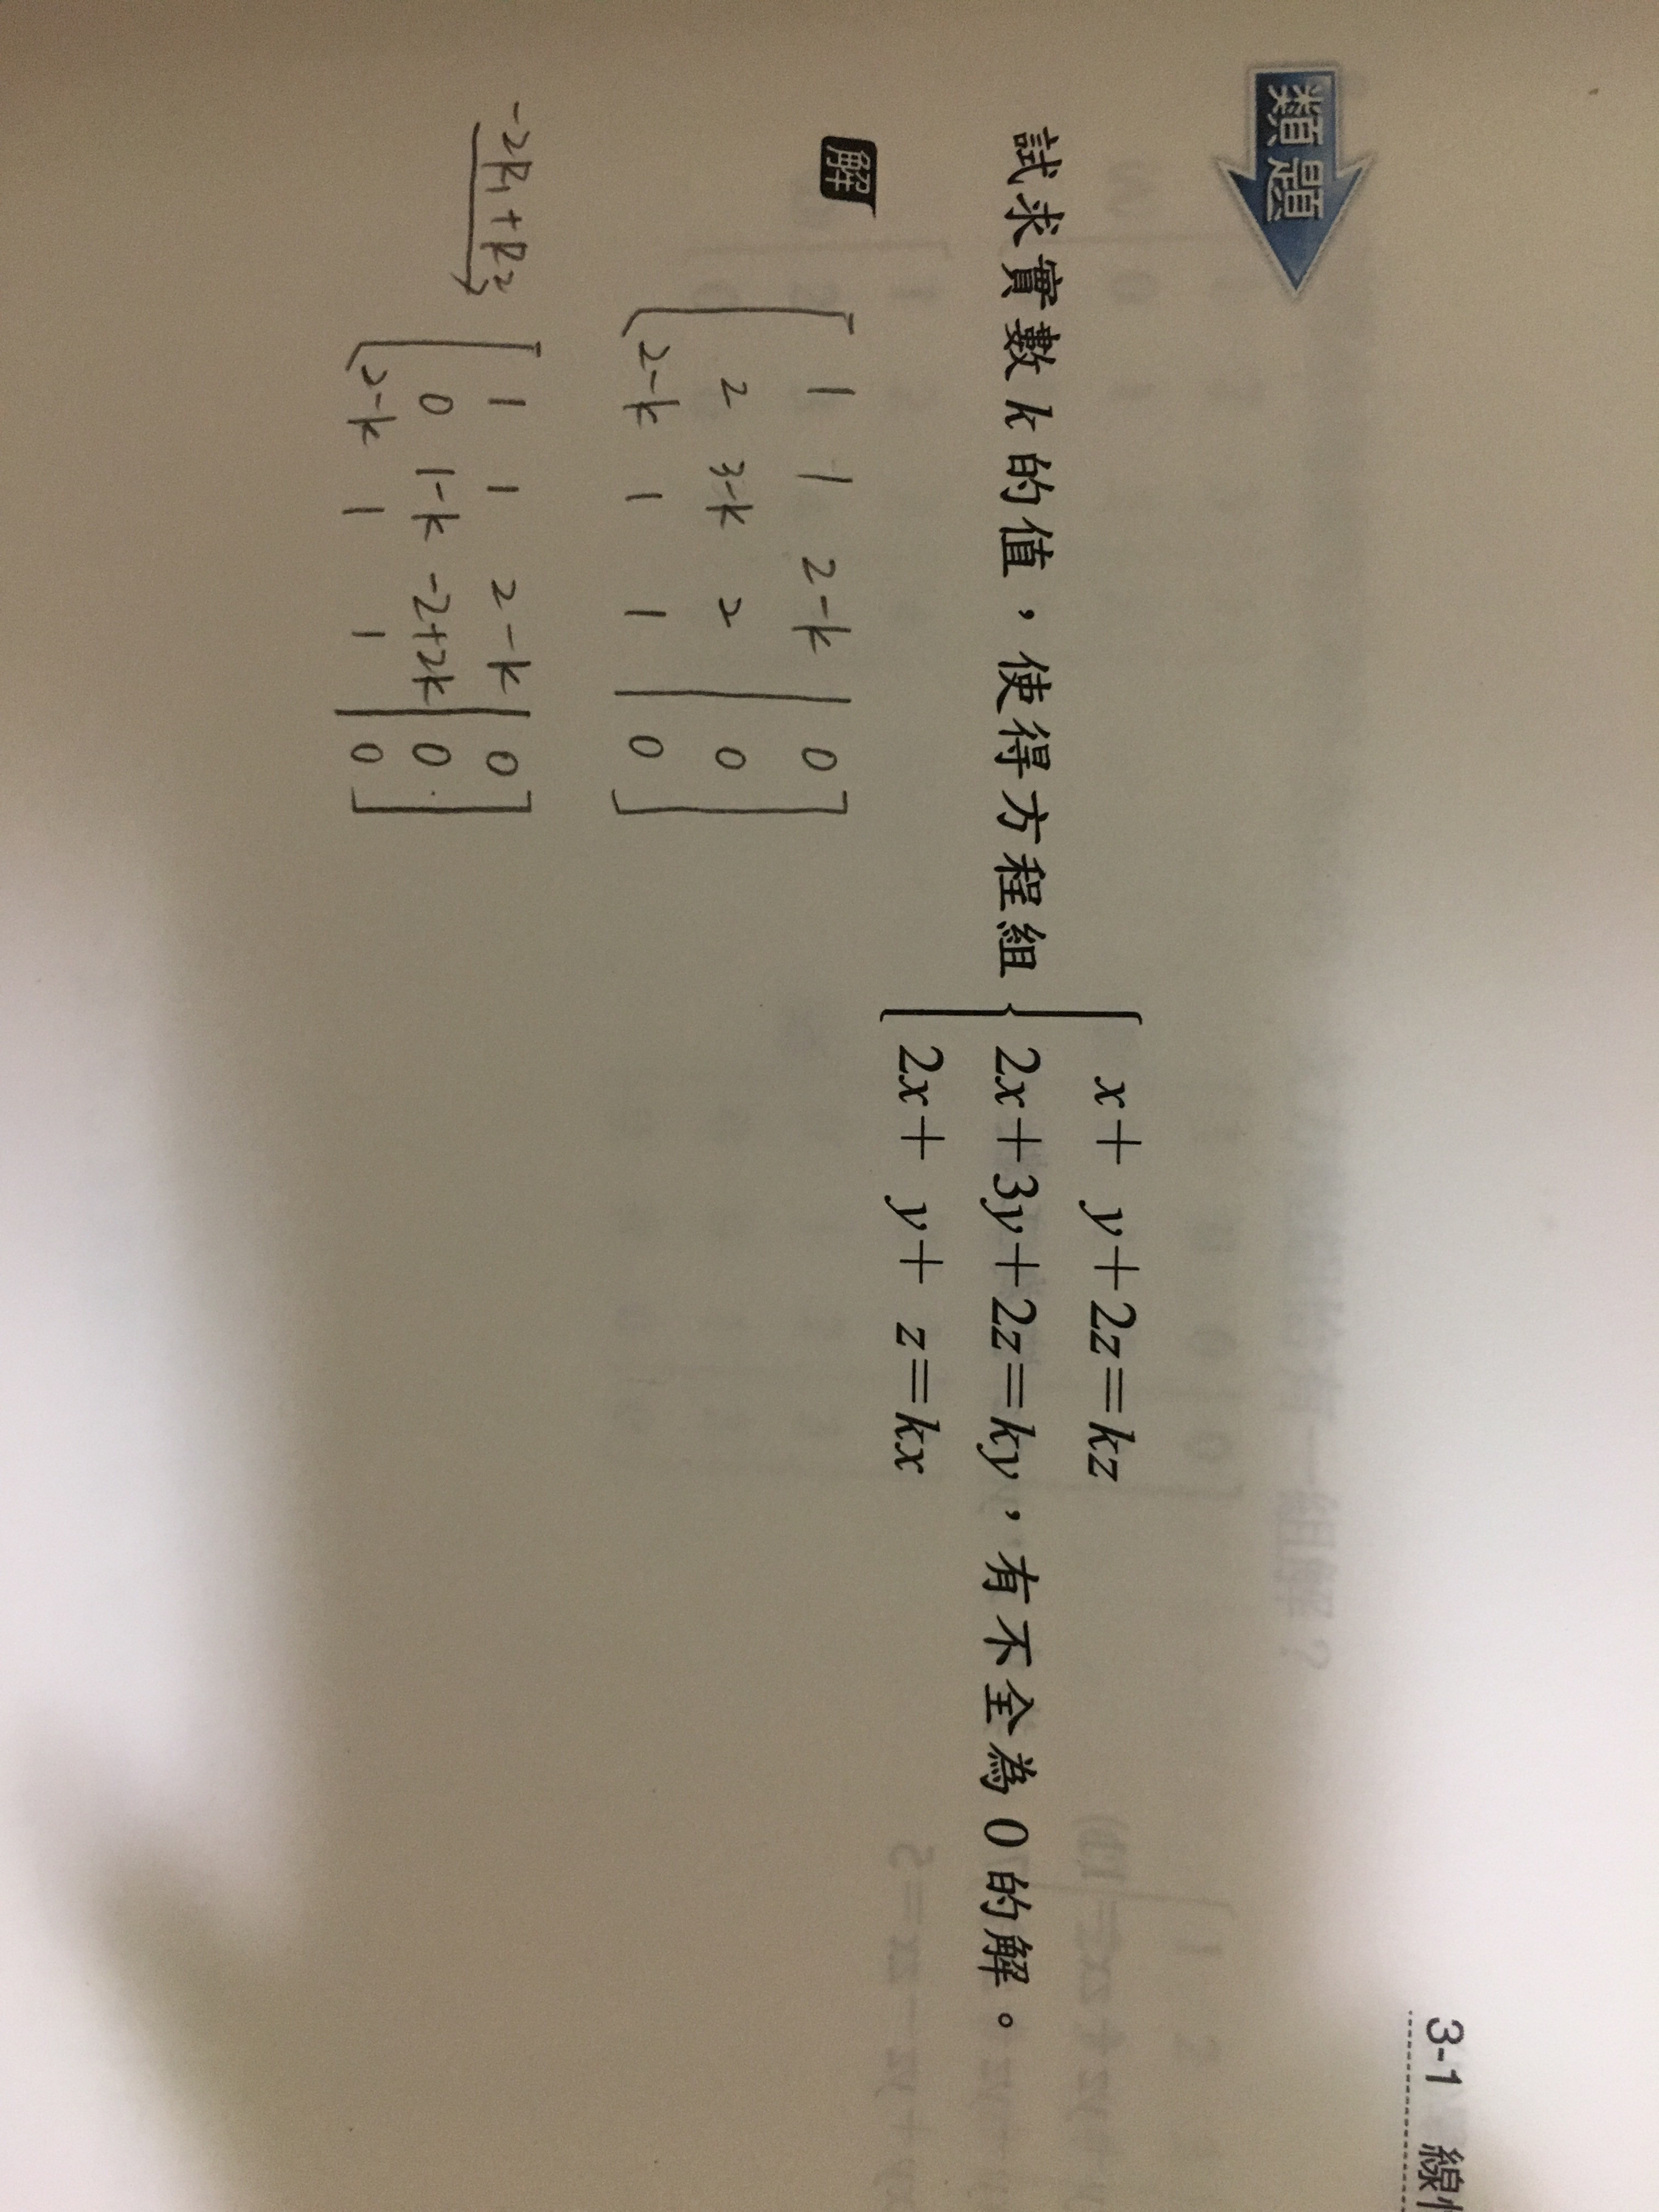 3-1 線性
類題
試求實數k的值，使得方程組
x+ y+2z=kz
2x+3y+2z=ky
2x+ y+ z=kx
，有不全為0的解。
解
1 1 2-k | 0
2 3-k 2 | 0
2-k 1 1 | 0
-2R₁+R₂
1 1 2-k | 0
0 1-k -2+2k | 0
2-k 1 1 | 0